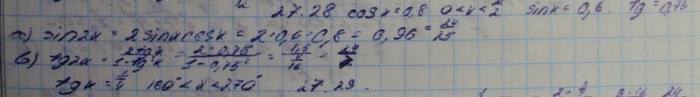 27.28 cos x = 0,8 0 < x < π/2 sin x = 0,6. tg = 0,75
а) sin2x = 2 sinx cosx = 2·0,6·0,8 = 0,96 = 24/25
в) tg2x = 2tgx/1-tg²x = 2·0,75/1-0,75² = 1,5/ 7/16 = 24/7
tgx = 3/4 180° < x < 270° 27.29.